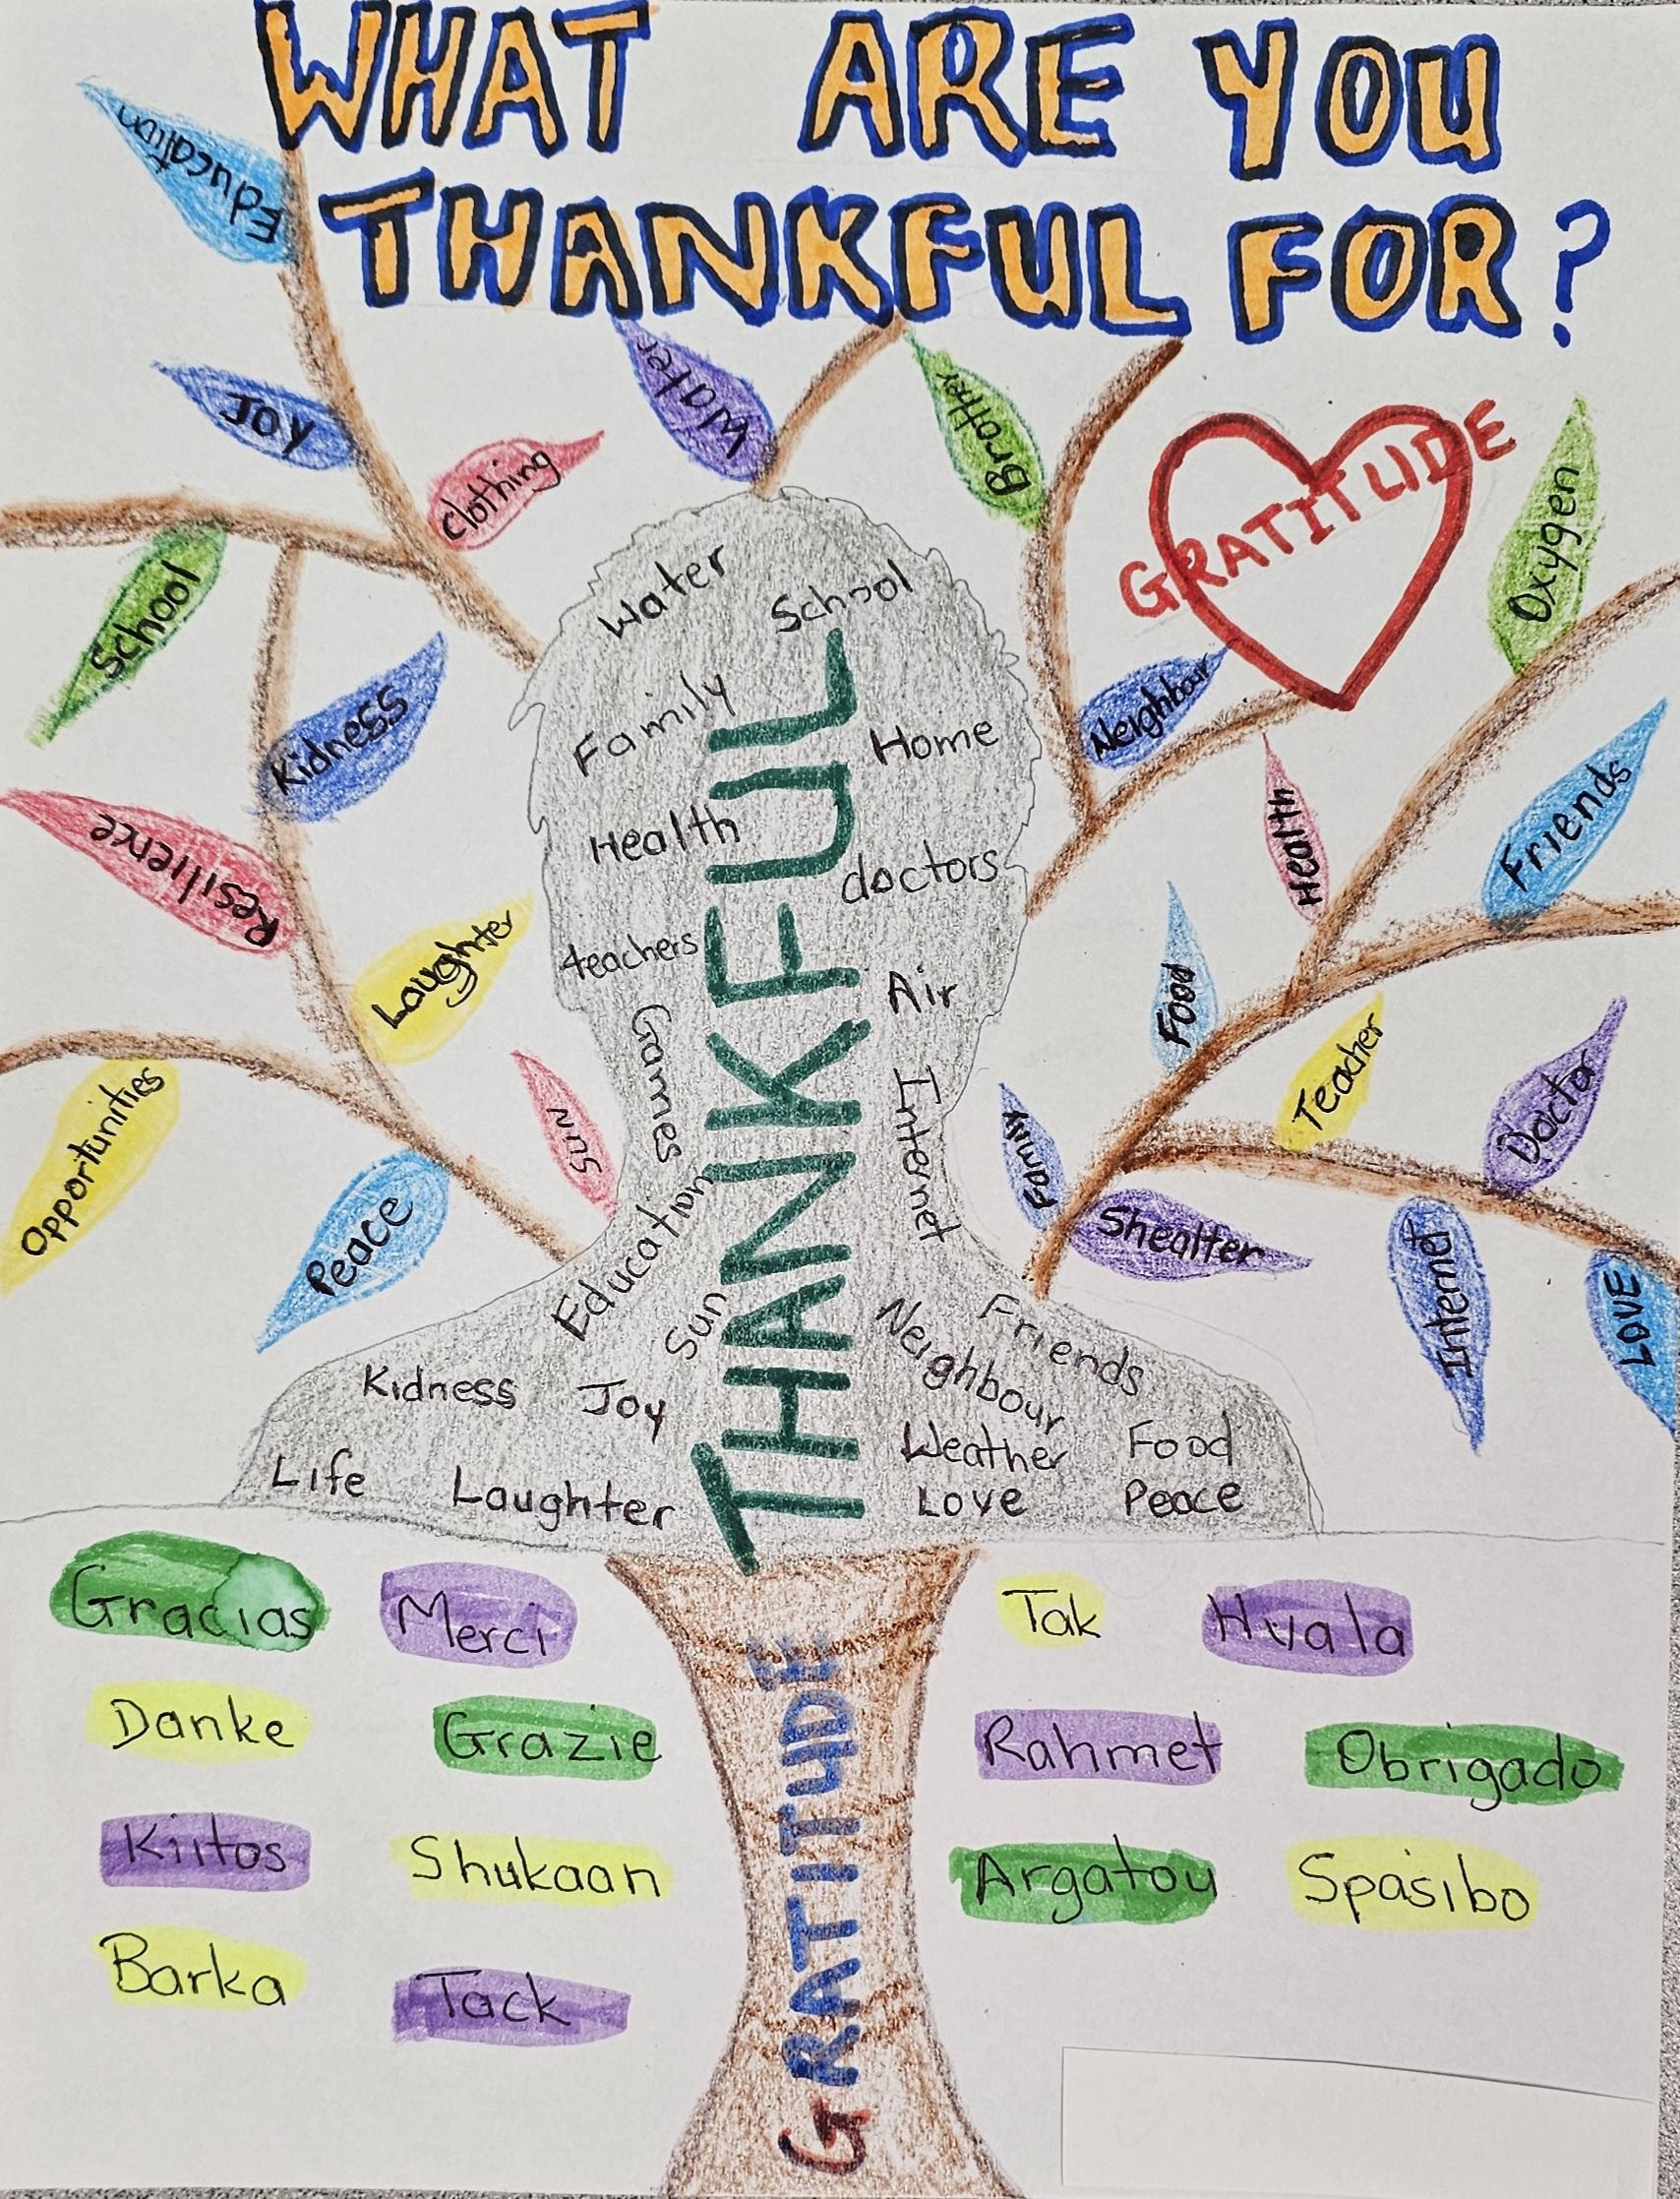 WHAT ARE YOU
THANKFUL FOR?
Education
Joy
Clothing
Water
Brother
GRATITUDE
Oxygen
School
Kidness
Neighbour
Resilience
Laughter
Health
Friends
Food
Opportunities
Peace
Sun
Family
Teacher
Doctor
Shealter
Internet
LOVE
Water
School
Family
Home
Health
doctors
teachers
Air
Games
Internet
Education
Sun
Neighbour
Friends
Kidness
Joy
Weather
Food
Life
Laughter
Love
Peace
THANKFUL
Gracias
Merci
Tak
Hvala
Danke
Grazie
Rahmet
Obrigado
Kiitos
Shukaan
Argatou
Spasibo
Barka
Tack
GRATITUDE